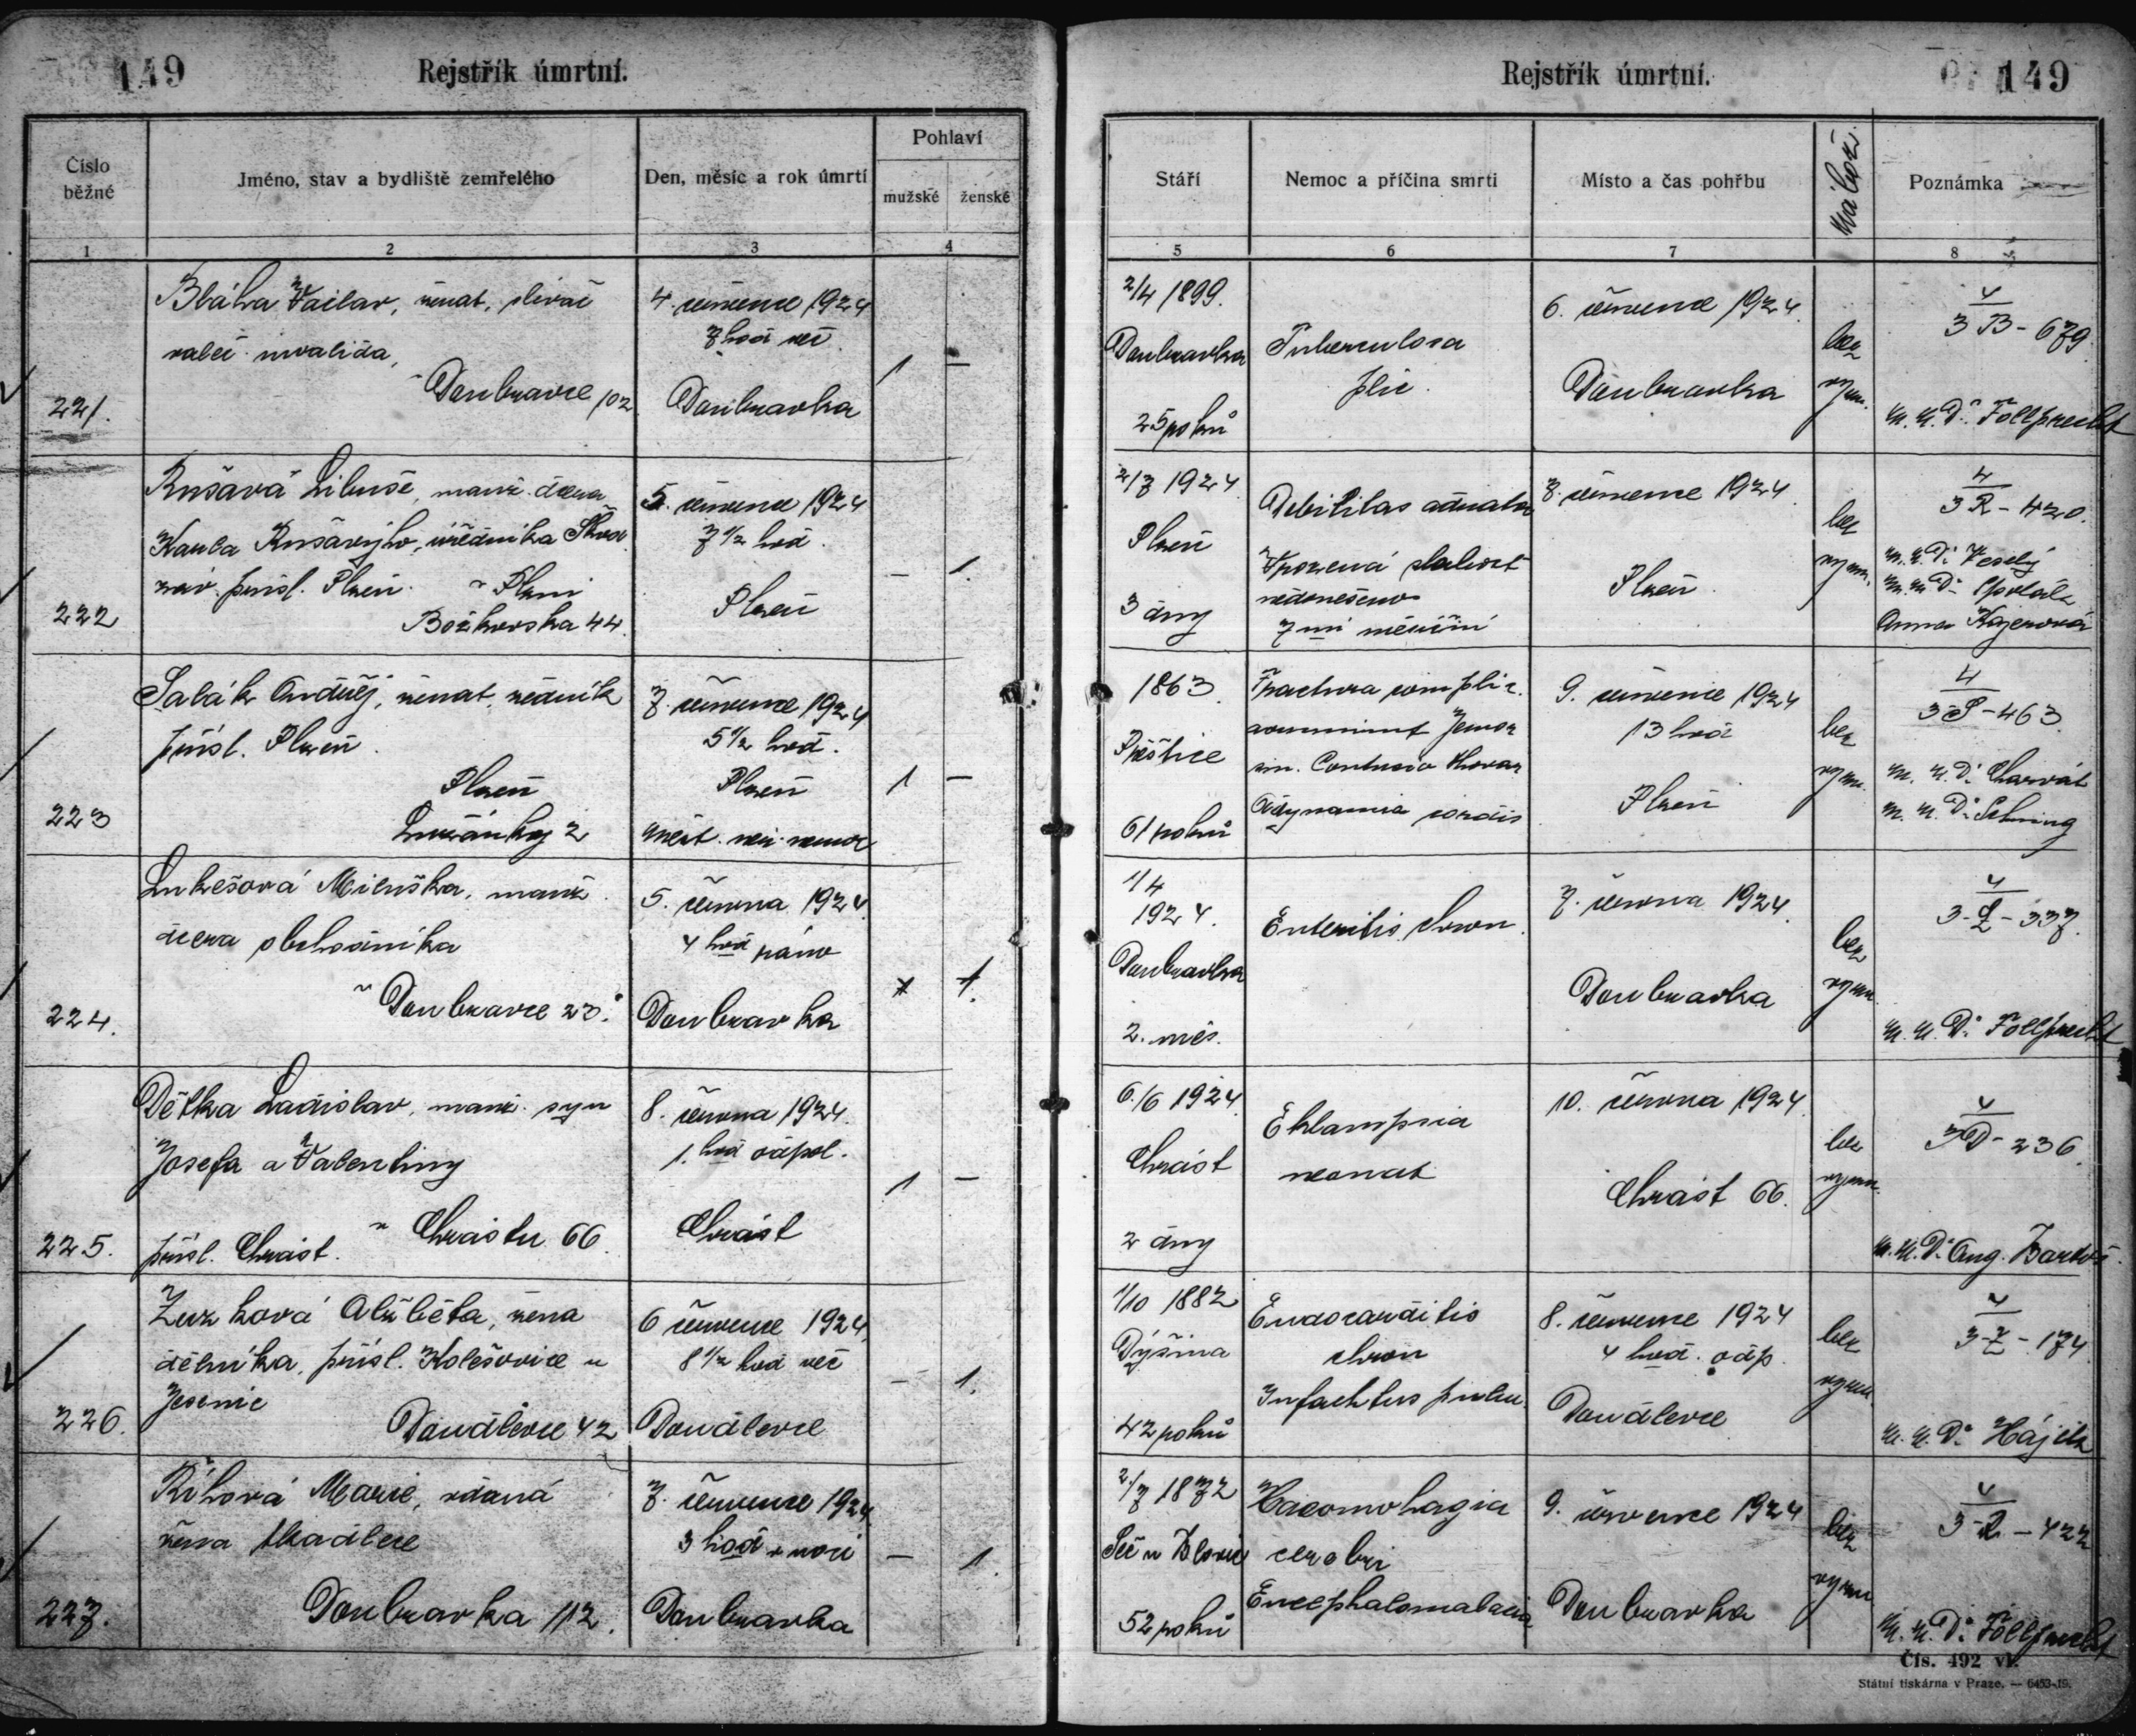 149
Rejstřík úmrtní.
Číslo běžné
Jméno, stav a bydliště zemřelého
Den, měsíc a rok úmrtí
Pohlaví
mužské
ženské
1
2
3
4
221.
Bláha Václav, ženat, slevač
váleč. invalida,
v Doubravce 102
4. července 1924
7 hod več
Doubravka
1
–
222
Rušavá Libuše, manž. dcera
Karla Rušavýho, úředníka Škod.
záv. přísl. Plzeň. v Plzni
Božkovská 44.
5. července 1924
7 1/2 hod.
Plzeň
–
1.
223
Salák Ondřej, ženat, zedník
přísl. Plzeň.
Plzeň
Lužánky 2
7. července 1924
5 1/2 hod.
Plzeň
měst. veř. nemoc
1
–
224.
Lukešová Miluška, manž.
dcera obchodníka
v Doubravce 23.
5. června 1924.
4 hod ráno
Doubravka
1.
225.
Dětka Ladislav, manž. syn
Josefa a Valentiny
přísl. Chrást. v Chrástu 66.
8. června 1924.
1. hod odpol.
Chrást
1
–
226.
Zuzková Alžběta, žena
dělníka, přísl. Kolešovice u
Jesenic
Doudlevce 42
6 července 1924.
8 1/2 hod več
Doudlevce
–
1.
227.
Říhová Marie, vdaná
žena tkadlece
Doubravka 112.
7. července 1924.
3 hod v noci
Doubravka
–
1.
Rejstřík úmrtní.
149
Stáří
Nemoc a příčina smrti
Místo a čas pohřbu
Nábož.
Poznámka
5
6
7
8
2/4 1899.
Doubravka
25 roků
Tuberculosa
plic.
6. července 1924.
Doubravka
bez
vyzn.
4
3 B - 679.
M. U. Dr. Follprecht
2/7 1924.
Plzeň
3 dny
Debilitas
Vrozená slabost
nedonešeno
7 mi měsíční
7. července 1924.
Plzeň.
bez
vyzn.
4
3 R - 420.
M. U. Dr. Veselý
M. U. Dr.
Anna
1863.
Přeštice
61 roků
Fractura complic.
comminut femor
sin. Contusio thorac
Adynamia cordis
9. července 1924
13 hod
Plzeň
bez
vyzn.
4
3 S - 463.
M. U. Dr. Charvát
M. U. Dr.
1/4
1924.
Doubravka
2. měs.
Enteritis chron.
7. června 1924.
Doubravka
bez
vyzn.
4
3 - L - 337.
M. U. Dr. Follprecht
6./6 1924.
Chrást
2 dny
Eklampsia
neonat
10. června 1924.
Chrást 66.
bez
vyzn.
4
3 D - 236.
M. U. Dr. Aug.
1/10 1882
Dýšina
42 roků
Endocarditis
chron
Infarktus pulm.
8. července 1924
4 hod. odp.
Doudlevce
bez
vyzn
4
3 - Z - 174.
M. U. Dr. Hájek
2/7 1872
Seč u Blovic
52 roků
Haeomohagia
cerebri
Encephalomalacia
9. července 1924
Doubravka
bez
vyzn
4
3 - R - 422
M. U. Dr. Follprecht
Čís. 492 vl.
Státní tiskárna v Praze. — 6453-19.